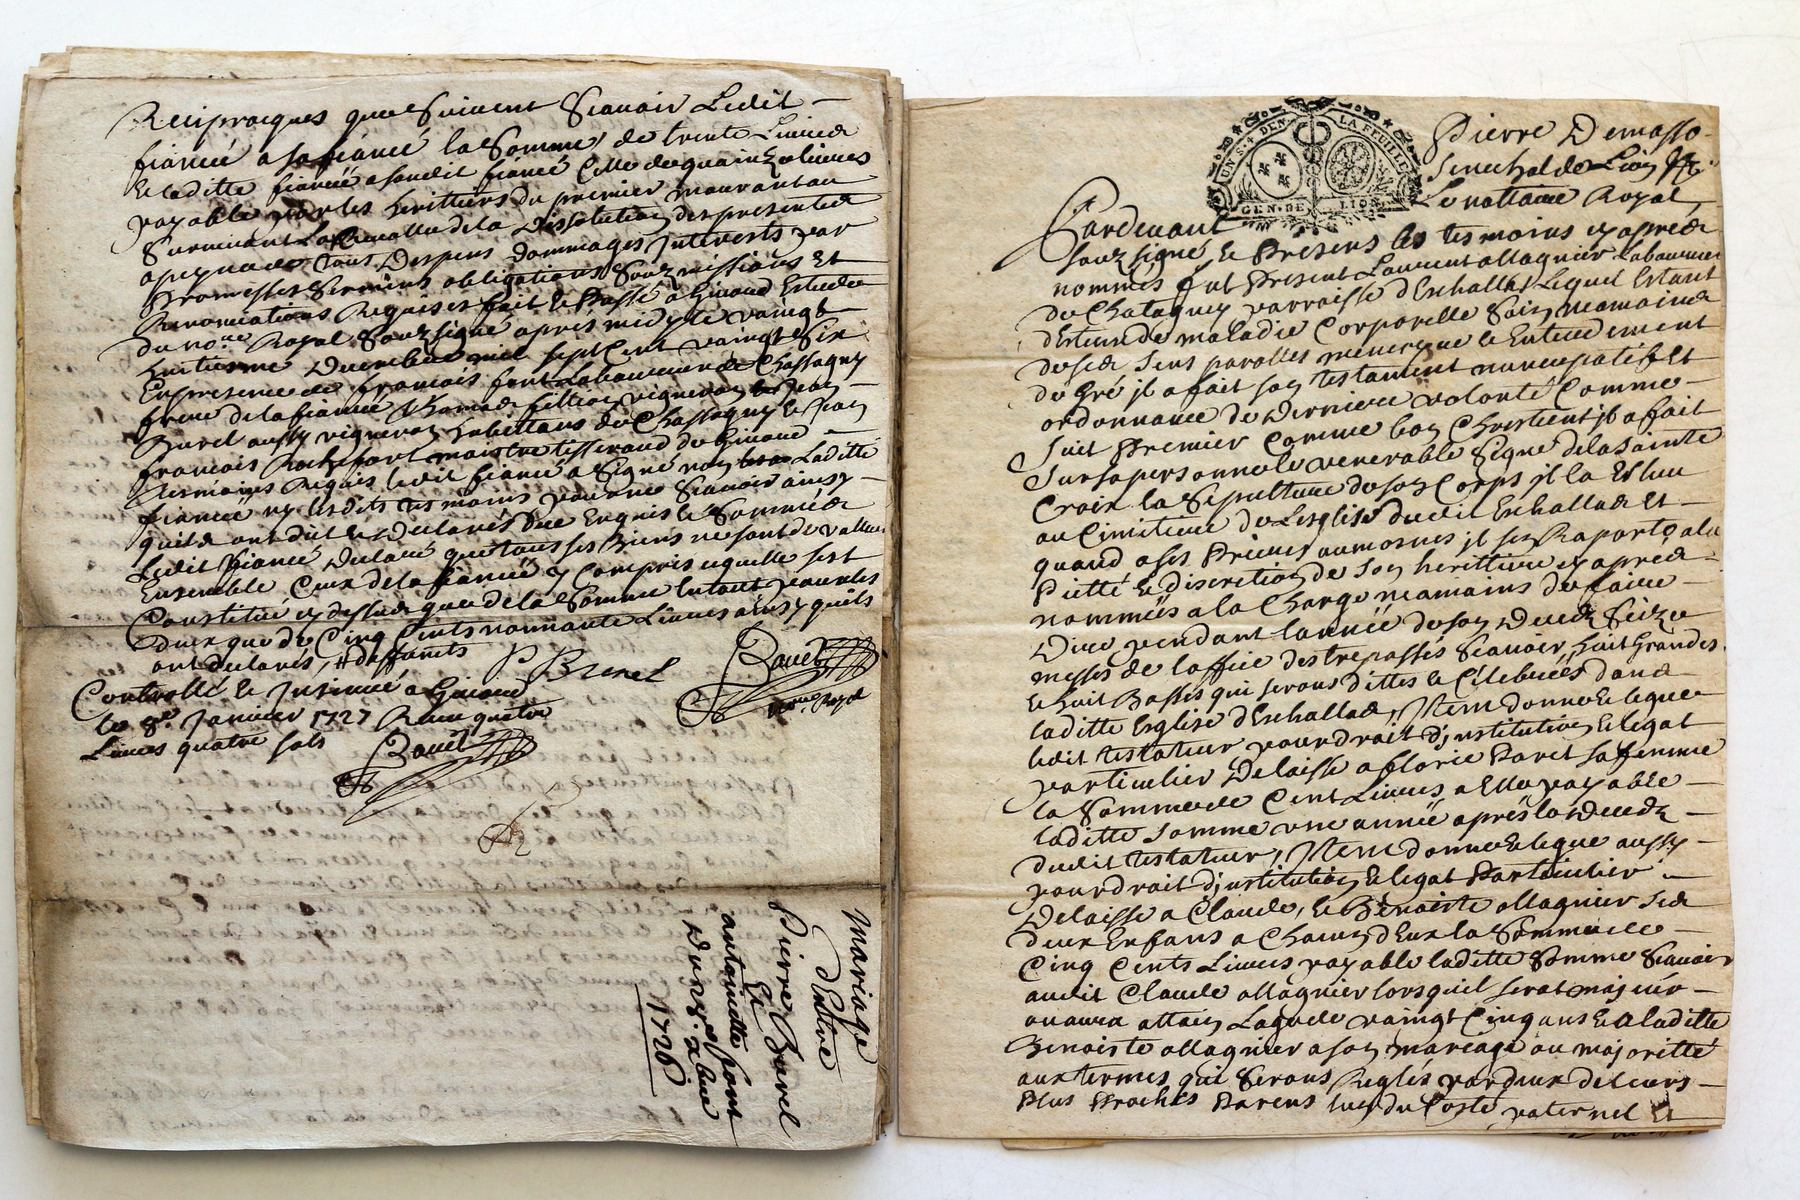 Reciproques que Suivent Scauoir Ledit
fiancé a sa fiancé la Somme de trente Liures
Et laditte fiancée a sondit fiancé Celle de quainze liures
payable par les heritiers du premier mourant au
Suruiuant La de la Dissolution des presentes
a peyne de tous Despens dommages Interests par
Promesses Sermens obligations Soubzmissions Et
Renonciations Requises fait & Passé a Giuord Estude
du no.re Royal Soubzsigné aprés midy le vaingt
huitieme Decembre mil sept Cent vaingt Six
En presence de francois font Laboureur de Chassagny
frere de la fiancée Thomas fillion vigneron Jean
Burel aussy vigneron habitans de Chassagny & Jean
francois Rochefort maistre tisserand de Giuord
tesmoins Requis ledit fiancé a Signé non Laditte
fiancée ny lesdits tesmoins pour ne Scauoir ainsy
quils ont dit & declarés De Enquis & Sommés
Ledit fiancé declare que tous ses Biens ne sont de valleur
Ensemble Ceux de la fiancée y Compris ce quelle sest
Constitué cy dessus que de la Somme en tout pour les
deux que de Cinq Cents nonnante Liures ainsy quils
ont declarés,
P Burel
Bouët
no.re Royal
Controllé & Insinué a Giuord
le 8.e Januier 1727 Receu quatre
Liures quatre sols
Bouët
Mariage
d'Entre
Pierre Burel
Et
antoinette font
Du xbre
1726
UN S. 4 DEN. LA FEUILLE
GEN. DE LION
Pierre Demasso
Senechal de Lion
Pardeuant Le nottaire Royal
Soubzsigné, & Presens les tesmoins cy aprés
nommés fut Present Laurent Magnier laboureur
de Chatagny parroisse d'Eschallas Lequel Estant
detenu de maladie Corporelle Sain neamoins
de ses Sens parolles memoyre & Entendement
de Gré il a fait son testament nuncupatif Et
ordonnance de Derniere volonté Comme
Suit Premier Comme bon Chrestient il a fait
Sur sa personne le venerable Signe de la Sainte
Croix la Sepulture de son Corps il la Esleu
au Cimitiere de Lesglise dudit Eschallas Et
quand a ses Prieres aumosnes il sen Raporte a la
Pietté & discretion de son heritiere cy aprés
nommée a la Charge neamoins de faire
Dire pendant lannée de son Decedz Seize
messes de loffice des trepassés Scauoir, huit Grandes
& huit Basses qui serons dittes & Celebrées dans
laditte Esglise d'Eschallas, Item donne & legue
ledit testateur pour droit d'institution & legat
particulier Delaisse a florie Paret sa femme
la Somme de Cent Liures a Elle payable
laditte Somme une année aprés le Decedz
dudit testateur, Item donne & legue aussy
pour droit d'institution & legat Particulier
Delaisse a Claude, & Benoiste Magnier Ses
deux Enfans a Chacun d'Eux la Somme de
Cinq Cents Liures payable laditte Somme Scauoir
audit Claude Magnier lors quil serat majeur
ou aura attain Laage de vaingt Cinq ans & a laditte
Benoiste Magnier a son mareage ou majoritté
aux termes qui Serons Reglés par deux de leurs
Plus Proches Parens lun du Costé paternel Et